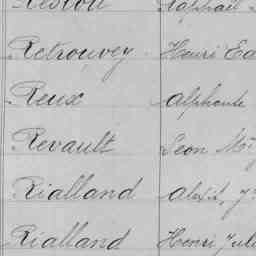 Retrouvey Henri
Reux Alphonse
Revault Léon
Rialland Alexis
Rialland Henri Jules